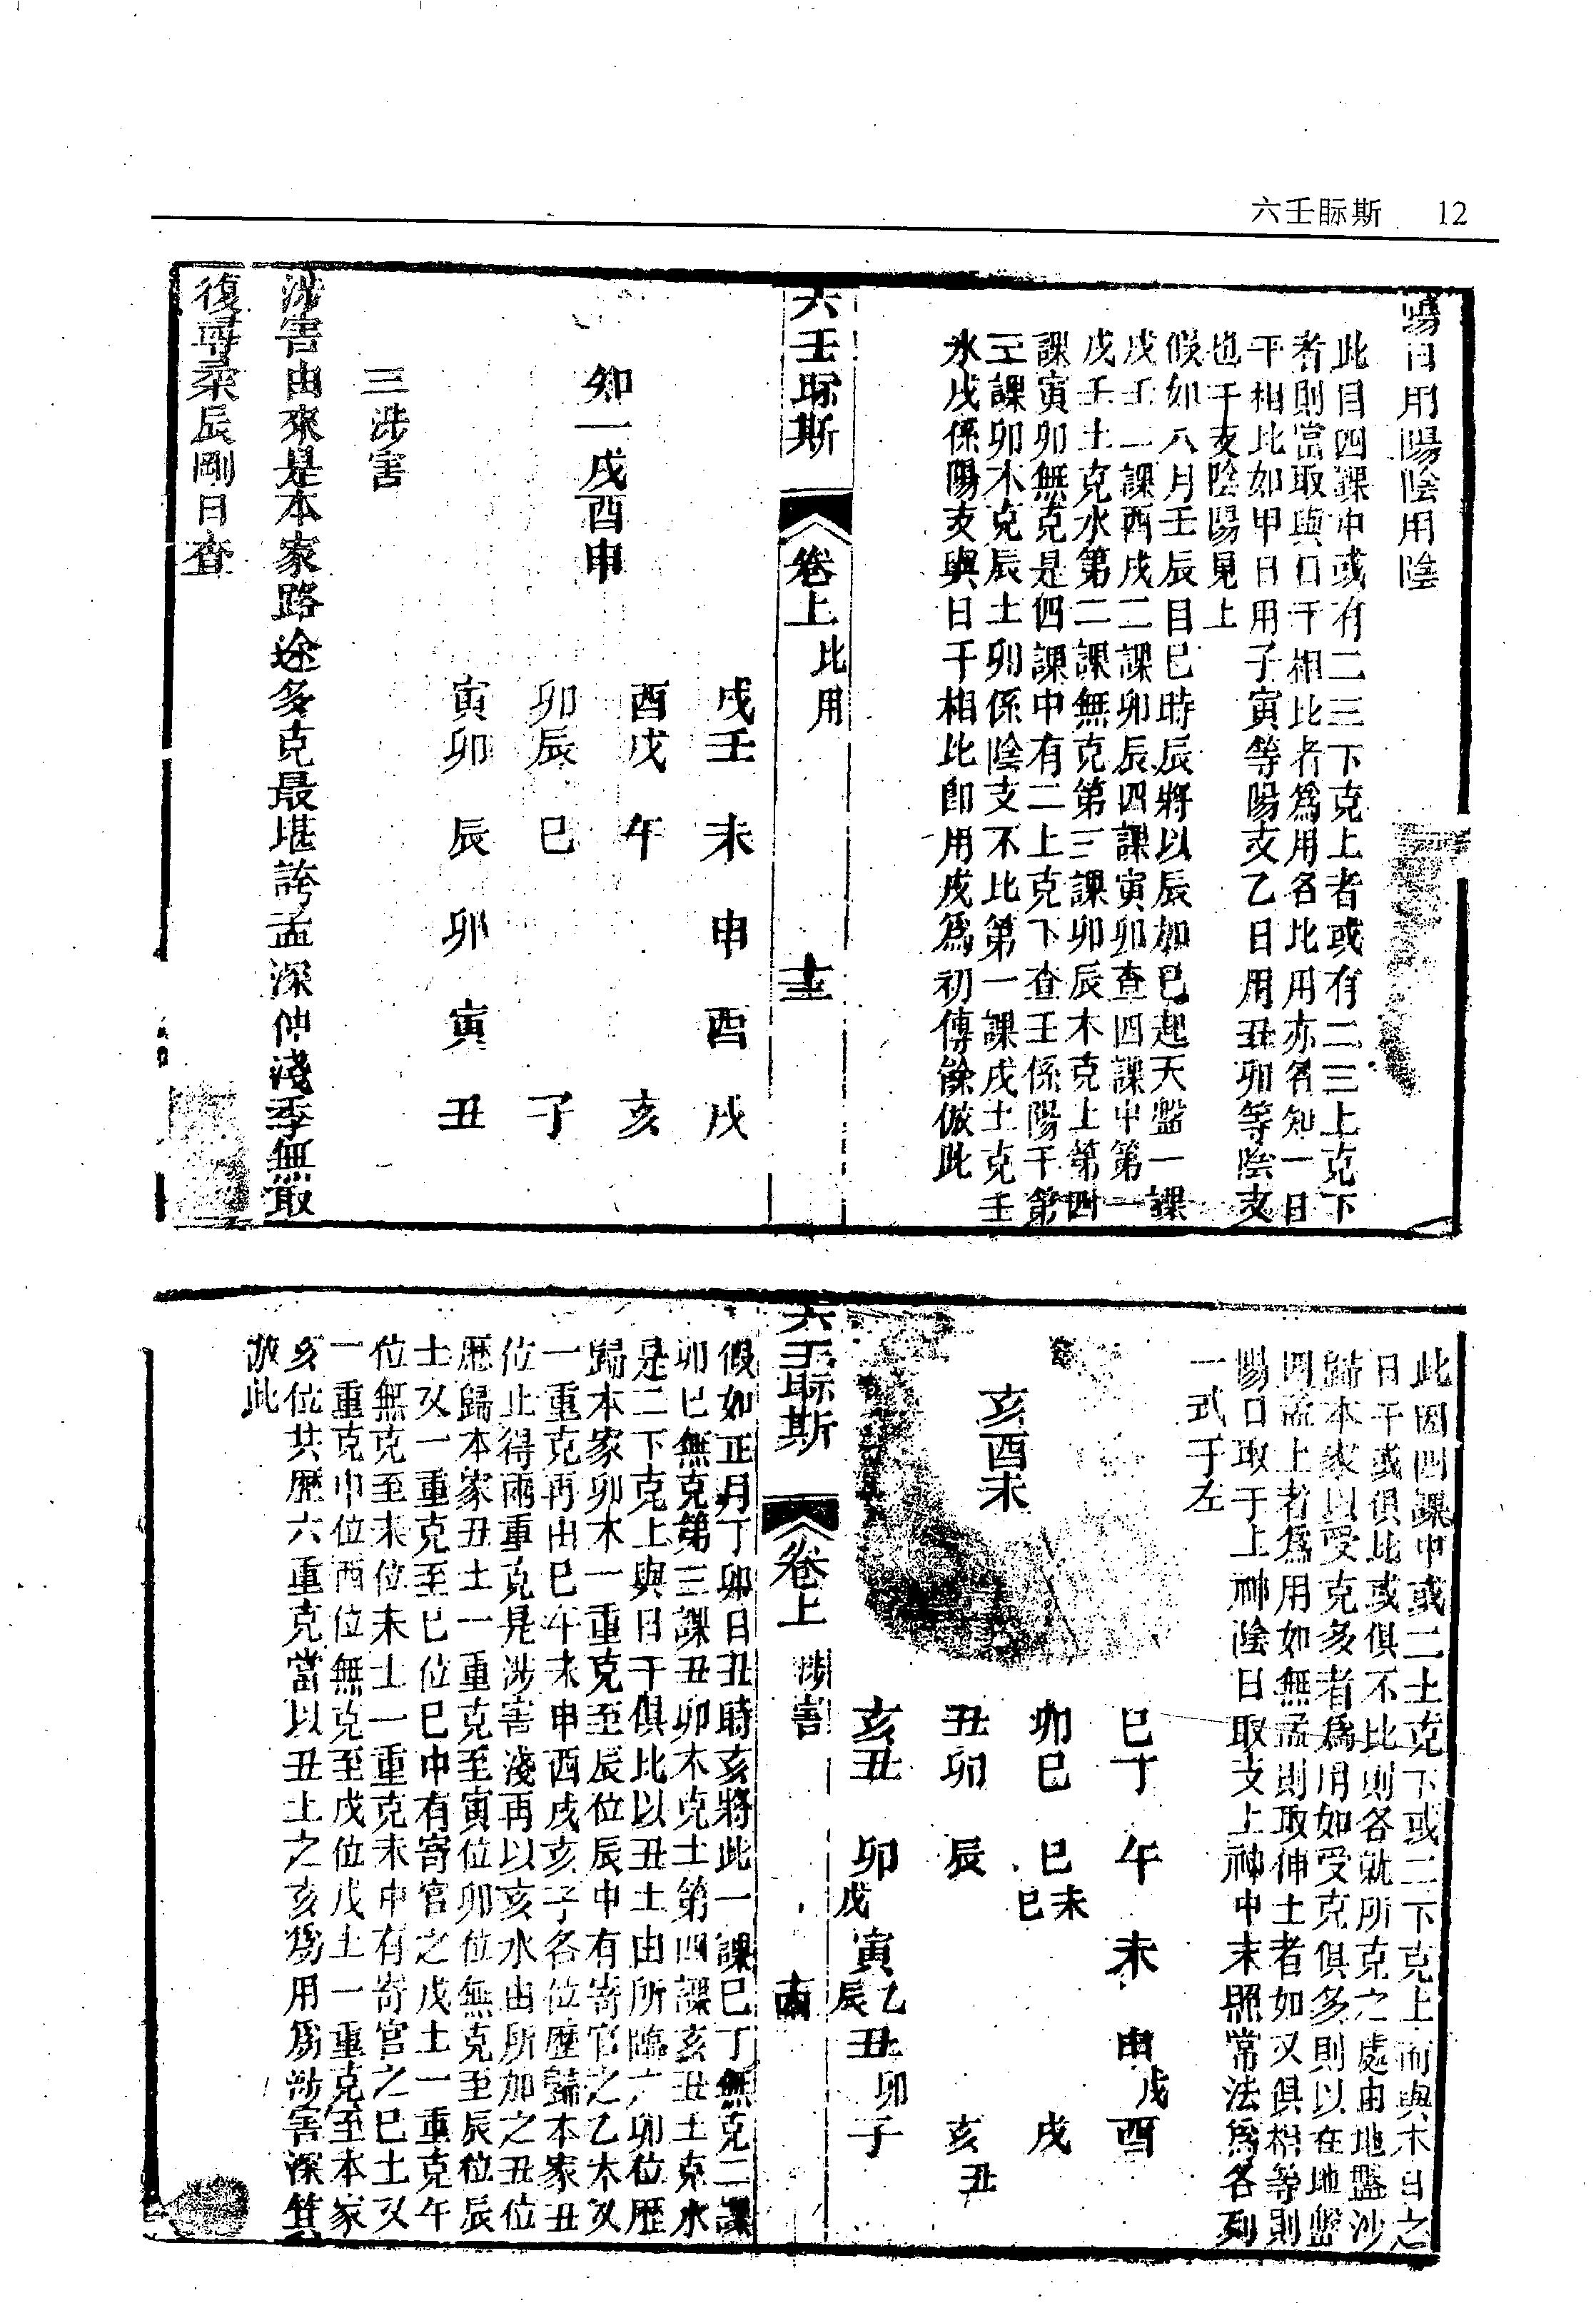 六壬眎斯 12
陽日用陽陰用陰
此目四課中或有二三下克上者或有二三上克下
者則當取與日干相比者為用名比用亦名知一日
干相比如甲日用子寅等陽支乙日用丑卯等陰支
也干支陰陽見上
假如八月壬辰日巳時辰將以辰加巳起天盤一課
戌壬二課酉戌三課卯辰四課寅卯查四課中第一
戌壬土克水第二課無克第三課卯辰木克土第四
課寅卯無克是四課中有二上克下查壬係陽干第
三課卯木克辰土卯係陰支不比第一課戌土克壬
水戌係陽支與日干相比即用戌為初傳餘倣此
六壬眎斯 卷上 比用 十三
知一戌酉申
戌壬 未 申 酉 戌
酉戌 午 亥
卯辰 巳 子
寅卯 辰 卯 寅 丑
三涉害
涉害由來是本家路途多克最堪誇孟深仲淺季無取
復尋柔辰剛日查
此因四課中或二上克下或二下克上而與本日之
日干或俱比或俱不比則各就所克之處由地盤涉
歸本家以受克多者為用如受克俱多則以在地盤
四孟上者為用如無孟則取仲上者如又俱相等則
陽日取干上神陰日取支上神中末照常法為各列
一式于左
亥酉未
巳丁 午 未 申戌 酉
卯巳 巳巳未 戌
丑卯 辰 亥丑
亥丑 卯戌 寅乙辰 丑卯 子
六壬眎斯 卷上 涉害 十四
假如正月丁卯日丑時亥將此一課巳丁無克二課
卯巳無克第三課丑卯木克土第四課亥丑土克水
是二下克上與日干俱比以丑土由所臨之卯位歷
歸本家卯木一重克至辰位辰中有寄官之乙木又
一重克再由巳午未申酉戌亥子各位歷歸本家丑
位止得兩重克是涉害淺再以亥水由所加之丑位
歷歸本家丑土一重克至寅位卯位無克至辰位辰
土又一重克至巳位巳中有寄官之戊土一重克午
位無克至未位未土一重克未中有寄官之巳土又
一重克申位酉位無克至戌位戌土一重克至本家
亥位共歷六重克當以丑上之亥為用為涉害深算
倣此